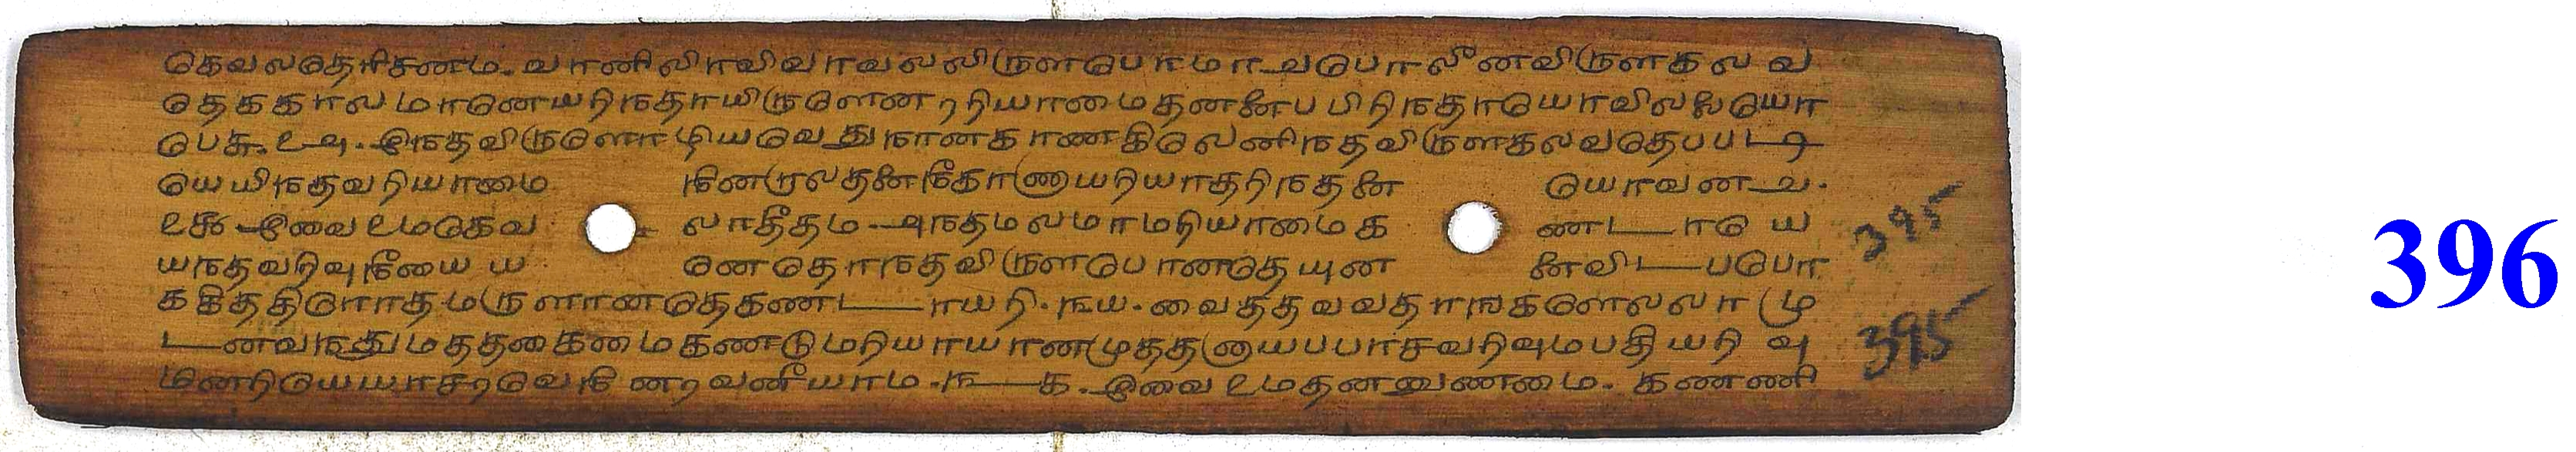 கெவலதெரிசனம. வானிலாவிவாவலலிருளபொமாவபோலீனவிருளகலவ
தெககாலமானெயரிநதாயிருளெனரரியாமைதனனைபபிரிநதாயொவிலலையோ
பெசு. உஅ. இநதவிருளொழியவெதுநானகாணகிலெனிநதவிருளகலவதெபபடி
யெயிநதவரியாமை நினருலதனைநிகோணையரியாதரிநதனை யொவன வ.
உகூ இவை உமகெவ லாதீதம அநதமலமாமரியாமைக ணடாயெ
யநதவரிவுநீயைய னெதொநதவிருளபொனதெயுன னைவிடபபொ
ககிததிரொதமருளானதெகணடாயரி. ஙய. வைததவவதாஙகளெலலாமு
டனவநதுமததகைமைகணடுமரியாயானமுததனையபபாசவரிவுமபதியரிவு
மனரியெயயாசரவெநினரவனீயாம. ஙக. இவை உமதனஉணமை. கணணி
395
395
396